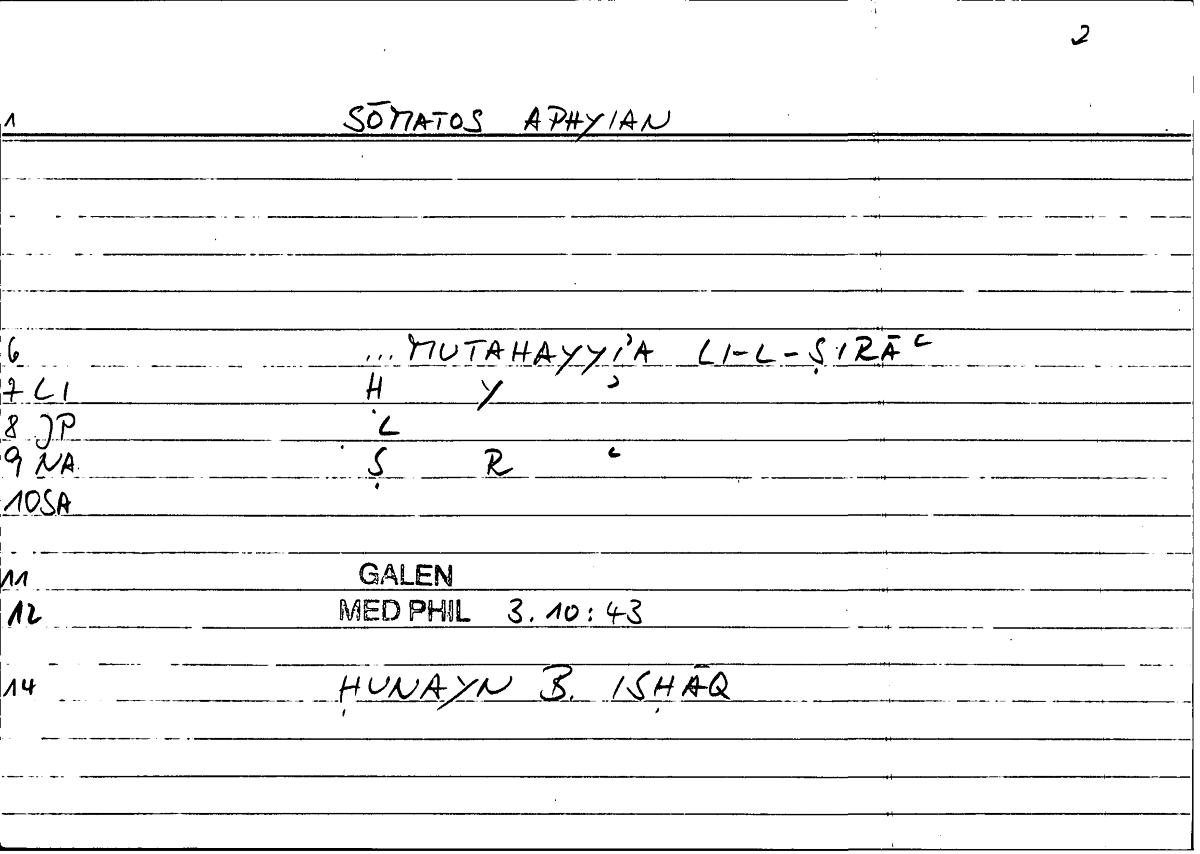 2
1 SŌMATOS APHYIAN
6 ...MUTAHAYYI'A LI-L-ṢIRĀʿ
7 LI H Y ʾ
8 JP L
9 NA Ṣ R ʿ
10 SA
11 GALEN
12 MED PHIL 3.10:43
14 ḤUNAYN B. ISḤĀQ